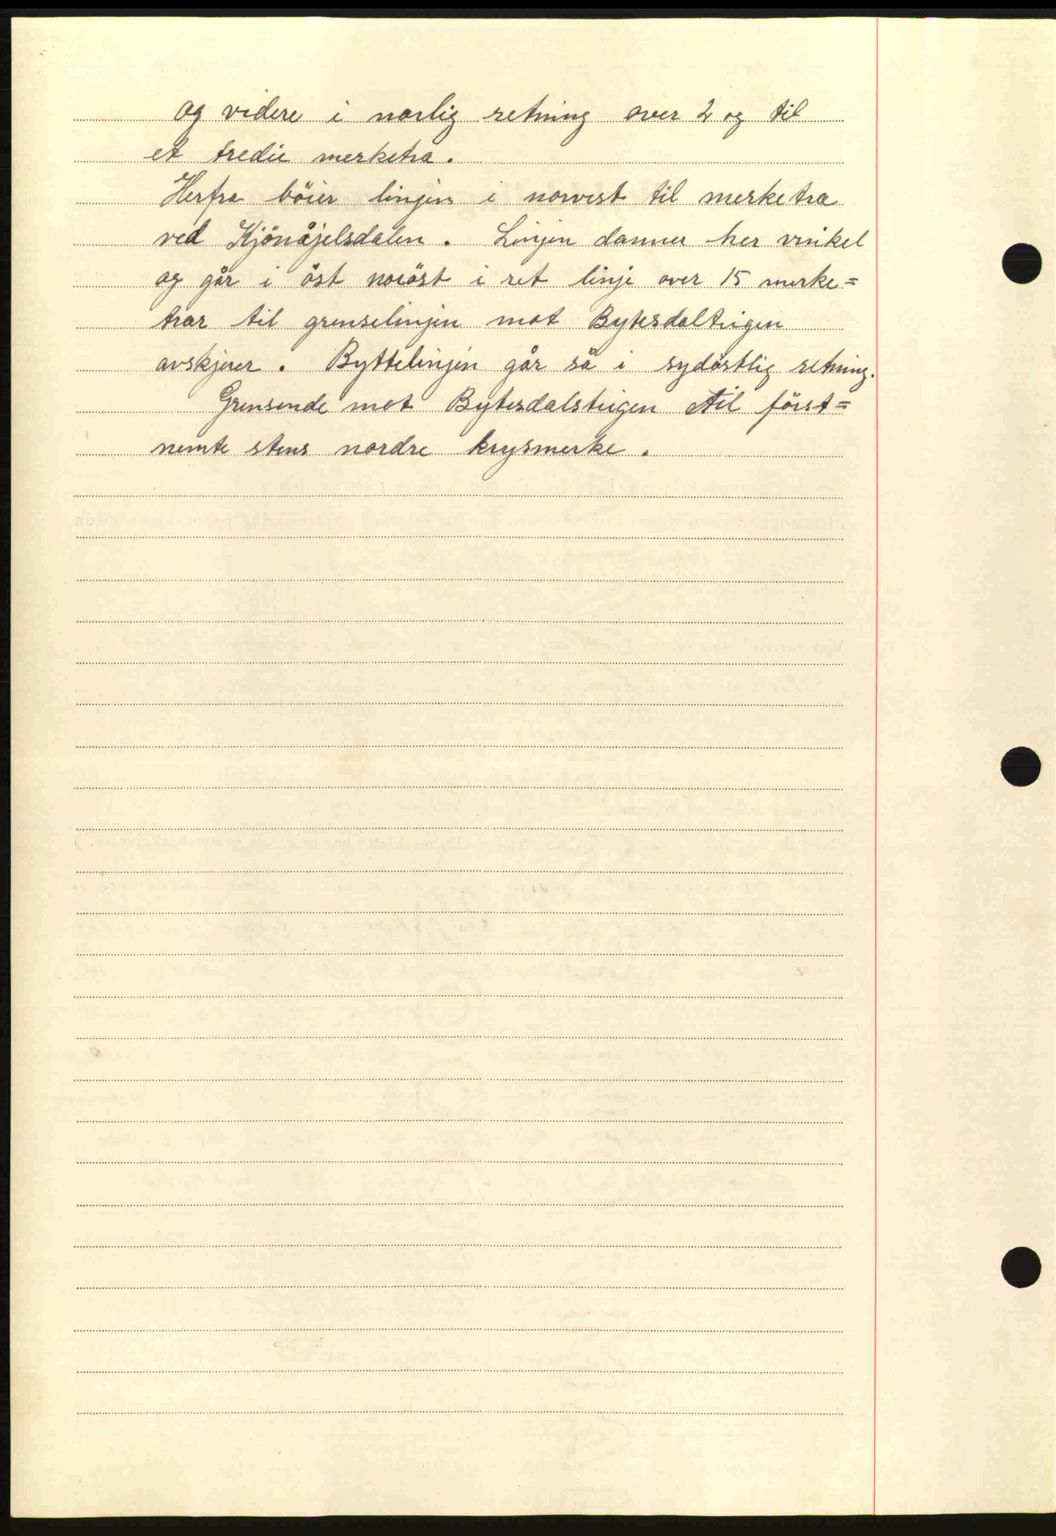 og videre i norlig retning over 2 og til
et tredie merketra.
Herfra böier linjen i norvest til merketra
ved Kjönåjelsdalen. Linjen danner her vinkel
og går i öst noröst i ret linje over 15 merke=
trar til grenselinjen mot Bytesdalteigen
avskjerer. Byttelinjen går så i sydöstlig retning.
Grensende mot Bytesdalsteigen til först=
nemte stens nordre krysmerke.